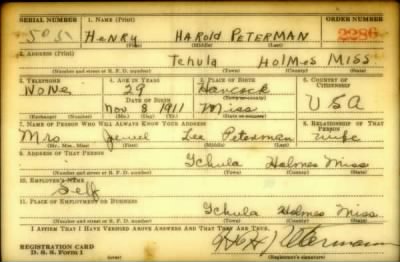 SERIAL NUMBER 1. NAME (Print) ORDER NUMBER
HENRY HAROLD PETERMAN 2286
(First) (Middle) (Last)
2. ADDRESS (Print)
Tchula HOLMES MISS
(Number and street or R. F. D. number) (Town) (County) (State)
3. TELEPHONE 4. AGE IN YEARS 5. PLACE OF BIRTH 6. COUNTRY OF CITIZENSHIP
NONE 29 Hancock
DATE OF BIRTH (Town or county)
Nov 8, 1911 Miss USA
(Exchange) (Number) (Mo.) (Day) (Yr.) (State or country)
7. NAME OF PERSON WHO WILL ALWAYS KNOW YOUR ADDRESS 8. RELATIONSHIP OF THAT PERSON
Mrs Jewel Lee Peterman wife
(Mr., Mrs., Miss) (First) (Middle) (Last)
9. ADDRESS OF THAT PERSON
Tchula Holmes Miss
(Number and street or R. F. D. number) (Town) (County) (State)
10. EMPLOYER'S NAME
Self
11. PLACE OF EMPLOYMENT OR BUSINESS
Tchula Holmes Miss.
(Number and street or R. F. D. number) (Town) (County) (State)
I AFFIRM THAT I HAVE VERIFIED ABOVE ANSWERS AND THAT THEY ARE TRUE.
REGISTRATION CARD
D. S. S. Form 1 (Registrant's signature)
Peterman